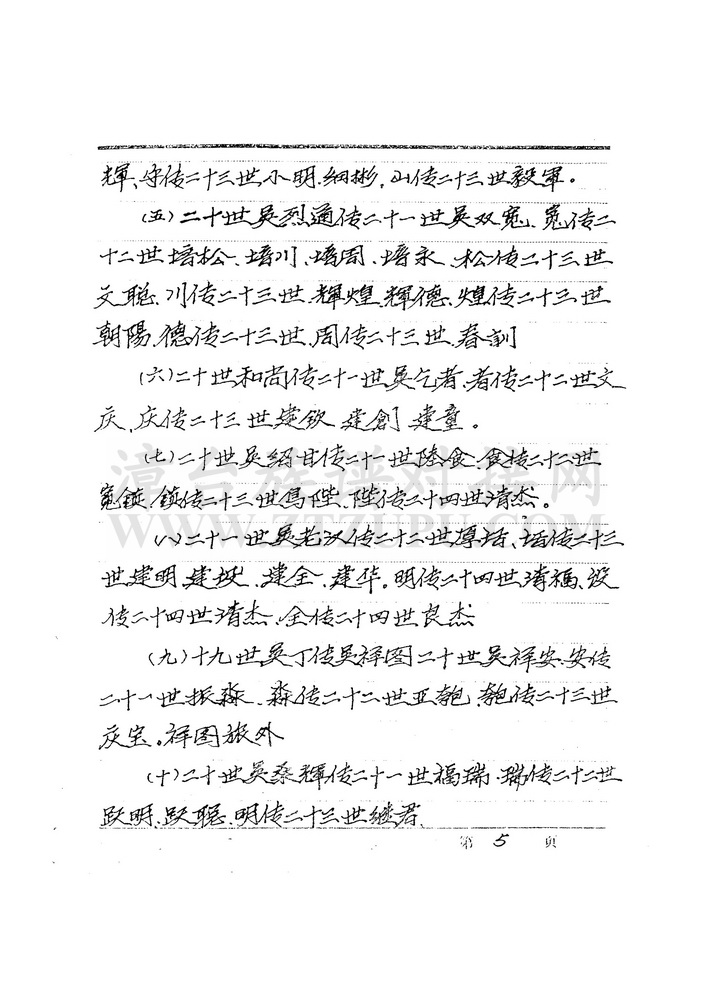 輝、守传二十三世小明.細彬，山传二十三世毅軍。
（五）二十世吴烈通传二十一世吴双寬、寬传二
十二世培松、培川、培周、培永、松传二十三世
文聪、川传二十三世.輝煌.輝德、煌传二十三世
朝陽、德传二十三世、周传二十三世、春剑
（六）二十世和尚传二十一世吴乞者、者传二十二世文
庆、庆传二十三世建钦 建創 建童。
（七）二十世吴绍甘传二十一世陸食、食传二十二世
寬鎮、鎮传二十三世 陞、陞传二十四世清杰。
（八）二十一世吴老汉传二十二世 、 传二十三
世建明、建 、建全、建华。明传二十四世清福、
传二十四世清杰、全传二十四世良杰
（九）十九世吴丁传吴祥图二十世吴祥安、安传
二十一世振淼、淼传二十二世亚 、 传二十三世
庆宝。祥图旅外
（十）二十世吴桑輝传二十一世福瑞、瑞传二十二世
跃明、跃聪、明传二十三世继君、
第 5 页
漳台族谱对接网
WWW.ZTZUPU.COM